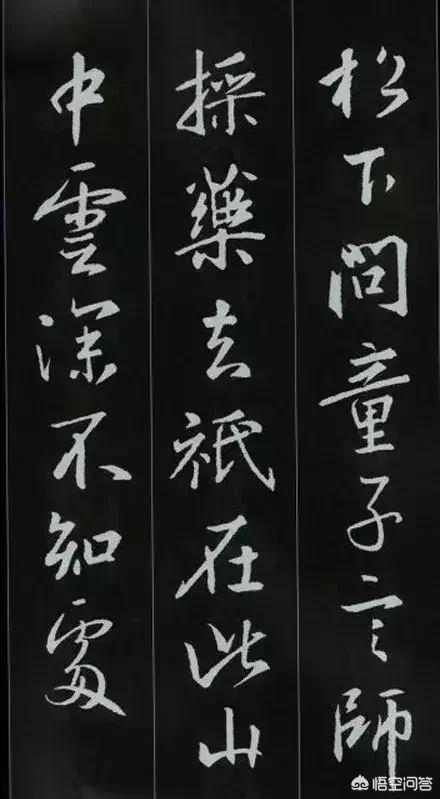 松下問童子言師
採藥去祇在此山
中雲深不知處
悟空问答